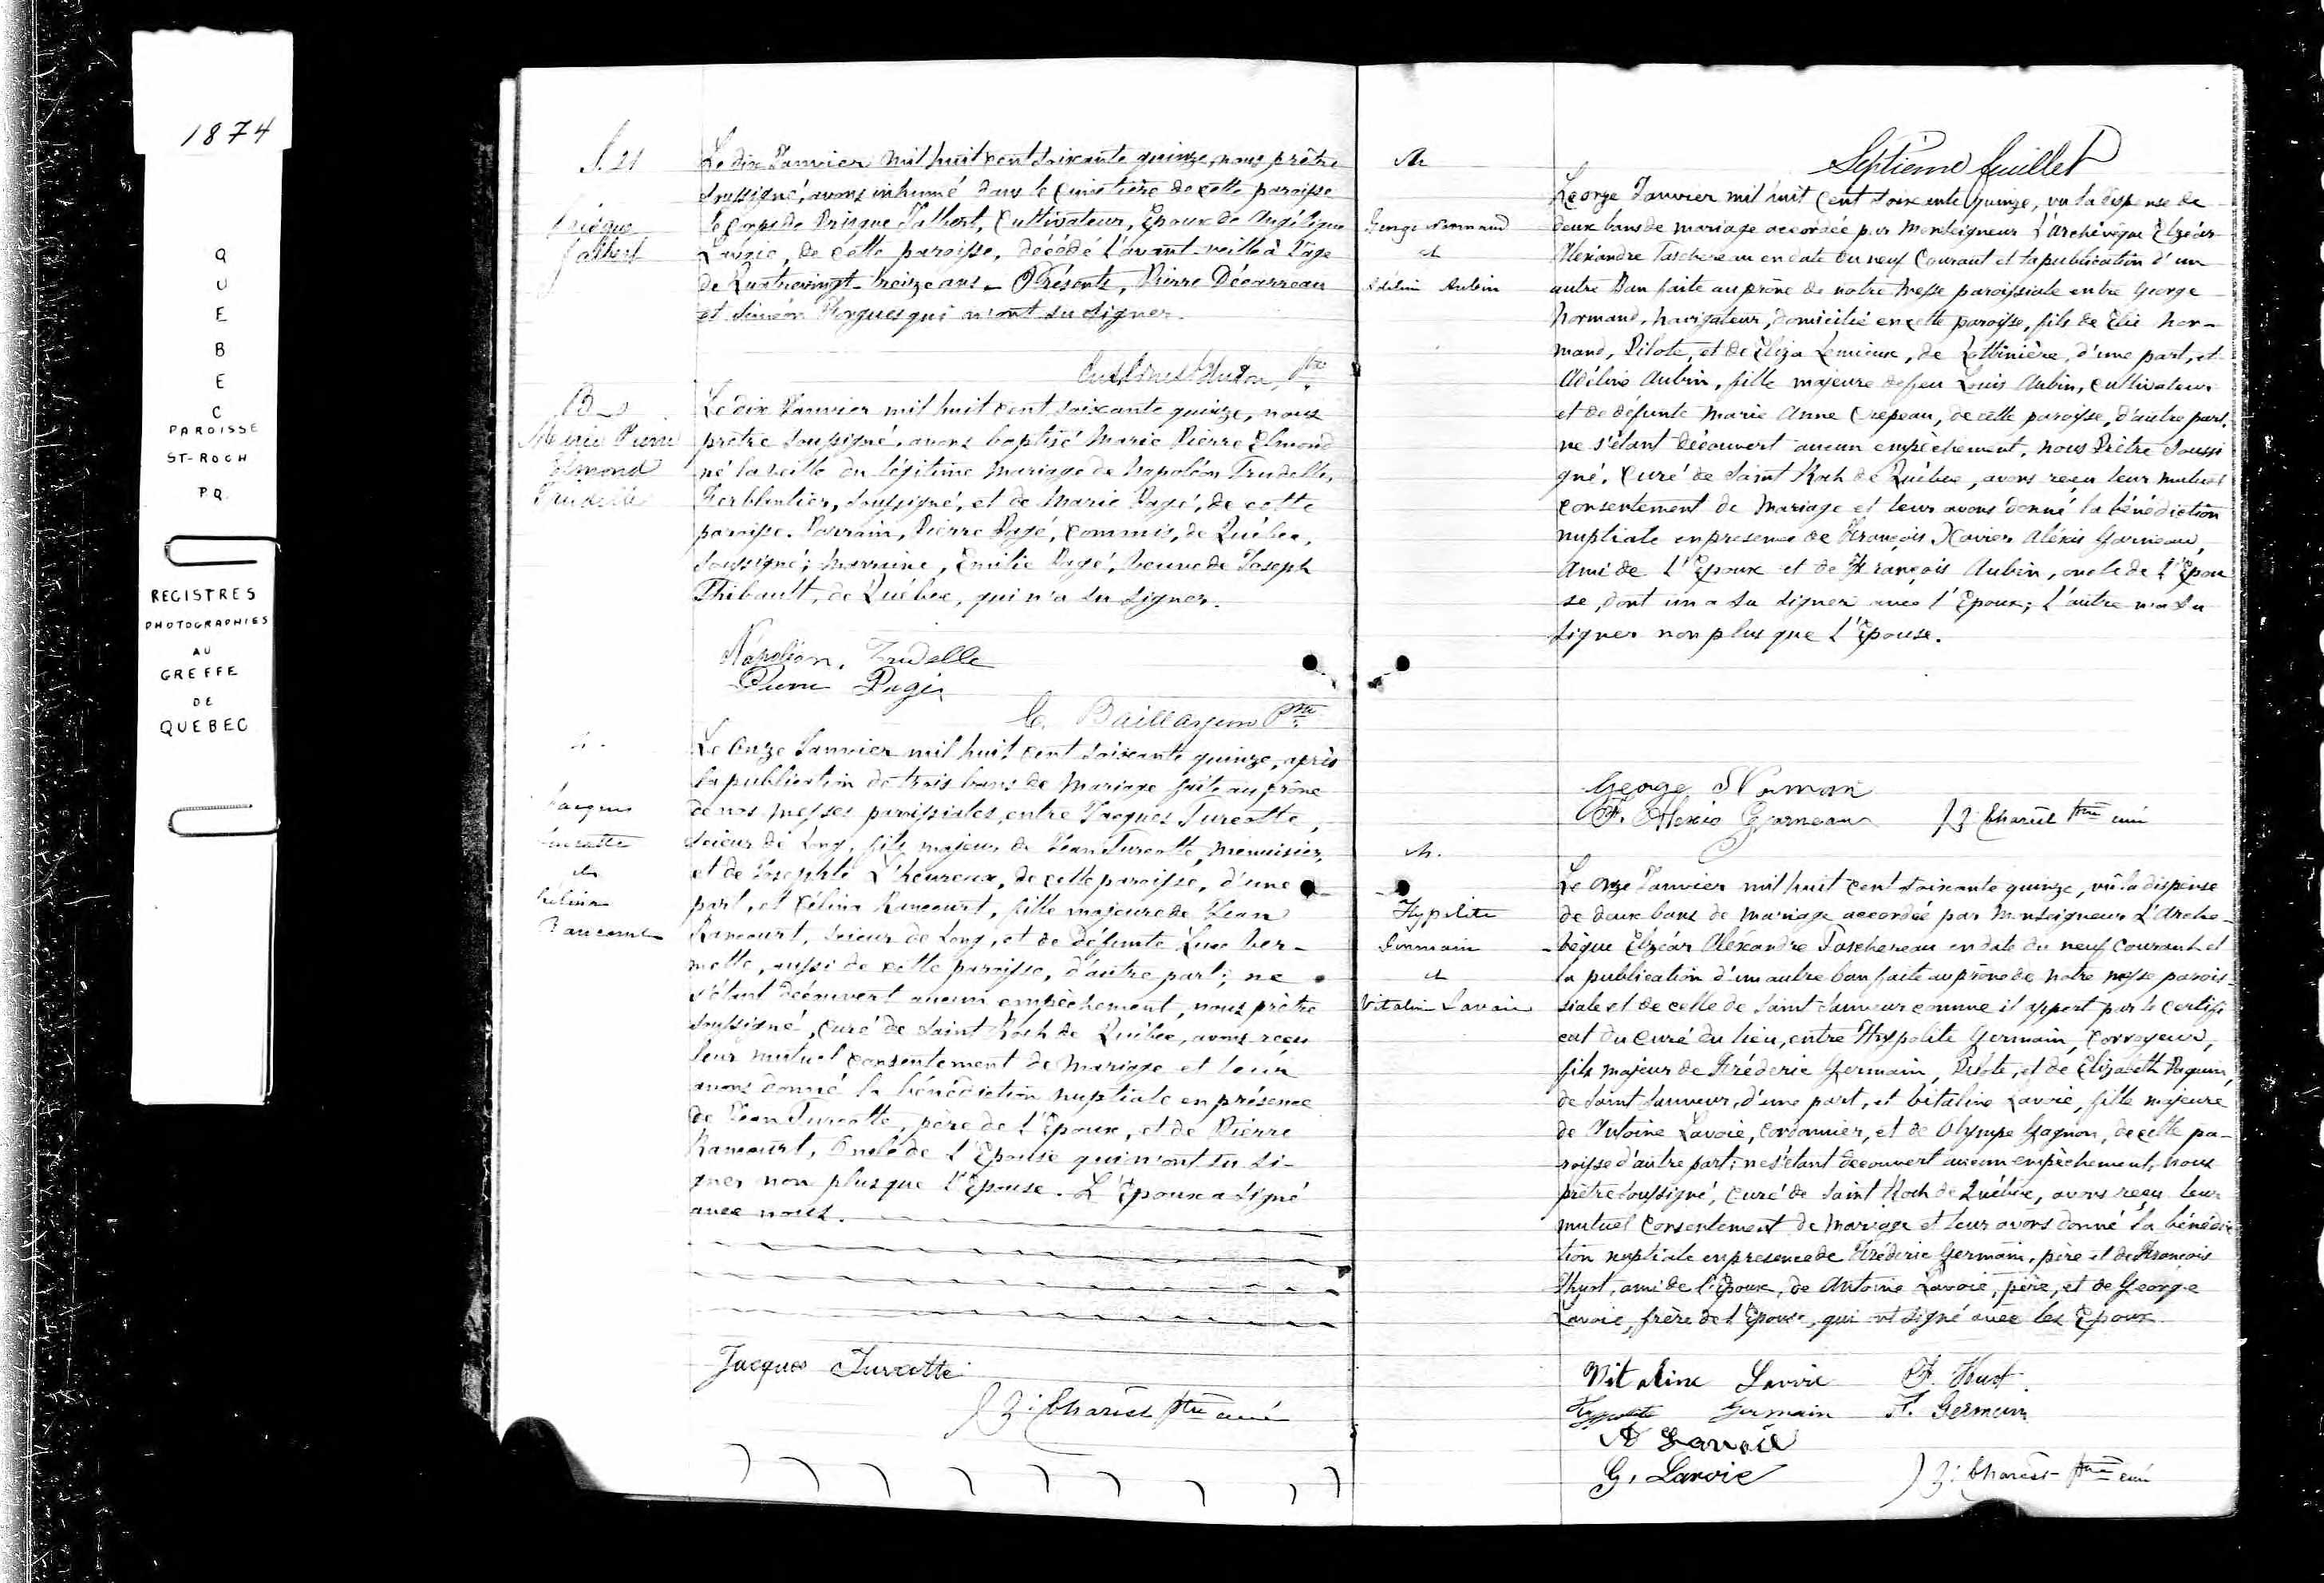 1874
QUEBEC
PAROISSE
ST-ROCH
P.Q.
REGISTRES
PHOTOGRAPHIES
AU
GREFFE
DE
QUEBEC
S. 21
Prisque
Jalbert
Le dix Janvier mil huit cent soixante quinze, nous prêtre
soussigné, avons inhumé dans le cimetière de cette paroisse
le corps de Prisque Jalbert, Cultivateur, Epoux de Angélique
de cette paroisse, décédé l'avant-veille à l'âge
de Quatrevingt-treize ans. Présents, Pierre Décarreau
et Siméon qui n'ont su signer.
Ptre
B
Marie Pierre
Elmond
Trudelle
Le dix Janvier mil huit cent soixante quinze, nous
prêtre soussigné, avons baptisé Marie Pierre Elmond
né la veille du légitime mariage de Napoléon Trudelle,
Ferblantier, soussigné, et de Marie Pagé, de cette
paroisse. Parrain, Pierre Pagé, Commis, de Québec,
soussigné; Marraine, Emilie Pagé, Veuve de Joseph
Thibault, de Québec, qui n'a su signer.
Napoléon. Trudelle
Pierre Pagé
C. Baillargeon Ptre
Jacques
Turcotte
et
Célina
Rancourt
Le Onze Janvier mil huit cent soixante quinze, après
la publication de trois bans de Mariage faite au prône
de nos messes paroissiales, entre Jacques Turcotte,
scieur de Long, fils majeur de Jean Turcotte, Menuisier,
et de Josephte L'heureux, de cette paroisse, d'une
part, et Célina Rancourt, fille majeure de Jean
Rancourt, scieur de Long, et de défunte Luce Ver-
mette, aussi de cette paroisse, d'autre part; ne
s'étant découvert aucun empêchement, nous prêtre
soussigné, Curé de Saint Roch de Québec, avons reçu
leur mutuel consentement de Mariage et leur
avons donné la bénédiction nuptiale en présence
de Jean Turcotte, père de l'Epoux, et de Pierre
Rancourt, Oncle de l'Epouse qui n'ont su si-
gner non plus que l'Epouse. L'Epoux a signé
avec nous.
Jacques Turcotte
Z: Charest Ptre curé
Septième feuillet
M
George Normand
et
Adéline Aubin
Le onze Janvier mil huit Cent soixante quinze, vu la dispense de
deux bans de mariage accordée par Monseigneur L'Archevêque Elzéar
Alexandre Taschereau en date du neuf Courant et la publication d'un
autre Ban faite au prône de notre Messe paroissiale entre George
Normand, Navigateur, domicilié en cette paroisse, fils de Elie Nor-
mand, Pilote, et de Eliza Lemieux, de Lotbinière, d'une part, et
Adéline Aubin, fille majeure de feu Louis Aubin, Cultivateur
et de défunte Marie Anne Crepeau, de cette paroisse, d'autre part,
ne s'étant découvert aucun empêchement, nous Prêtre soussi
gné, Curé de Saint Roch de Québec, avons reçu leur mutuel
consentement de Mariage et leur avons donné la bénédiction
nuptiale en presence de François Xavier Aléxis Garneau,
Ami de l'Epoux et de François Aubin, oncle de l'Epou
se, dont un a su signer avec l'Epoux; l'autre n'a su
signer non plus que l'Epouse.
George Norman
F. Alexis Garneau Z: Charest Ptre curé
M.
Hypolite
Germain
et
Vitaline Lavoie
Le Onze Janvier mil huit Cent soixante quinze, vû la dispense
de deux bans de mariage accordée par Monseigneur L'Arche-
vêque Elzéar Alexandre Taschereau en date du neuf Courant et
la publication d'un autre ban faite au prône de notre messe parois-
siale et de celle de Saint Sauveur comme il appert par le certifi
cat du curé du lieu, entre Hypolite Germain, Corroyeur,
fils majeur de Fréderic Germain, Pilote, et de Elizabeth Paquin,
de Saint Sauveur, d'une part, et Vitaline Lavoie, fille majeure
de Antoine Lavoie, Cordonnier, et de Olympe Gagnon, de cette pa-
roisse d'autre part; ne s'étant découvert aucun empêchement, nous
prêtre soussigné, Curé de Saint Roch de Québec, avons reçu leur
mutuel consentement de Mariage et leur avons donné la bénédic
tion nuptiale en presence de Fréderic Germain, père et de François
Huot, ami de l'Epoux, de Antoine Lavoie, père, et de George
Lavoie, frère de l'Epouse, qui ont signé avec les Epoux.
Vitaline Lavoie F. Huot
Hypolite Germain F. Germain
A Lavoie
G. Lavoie Z: Charest Ptre curé